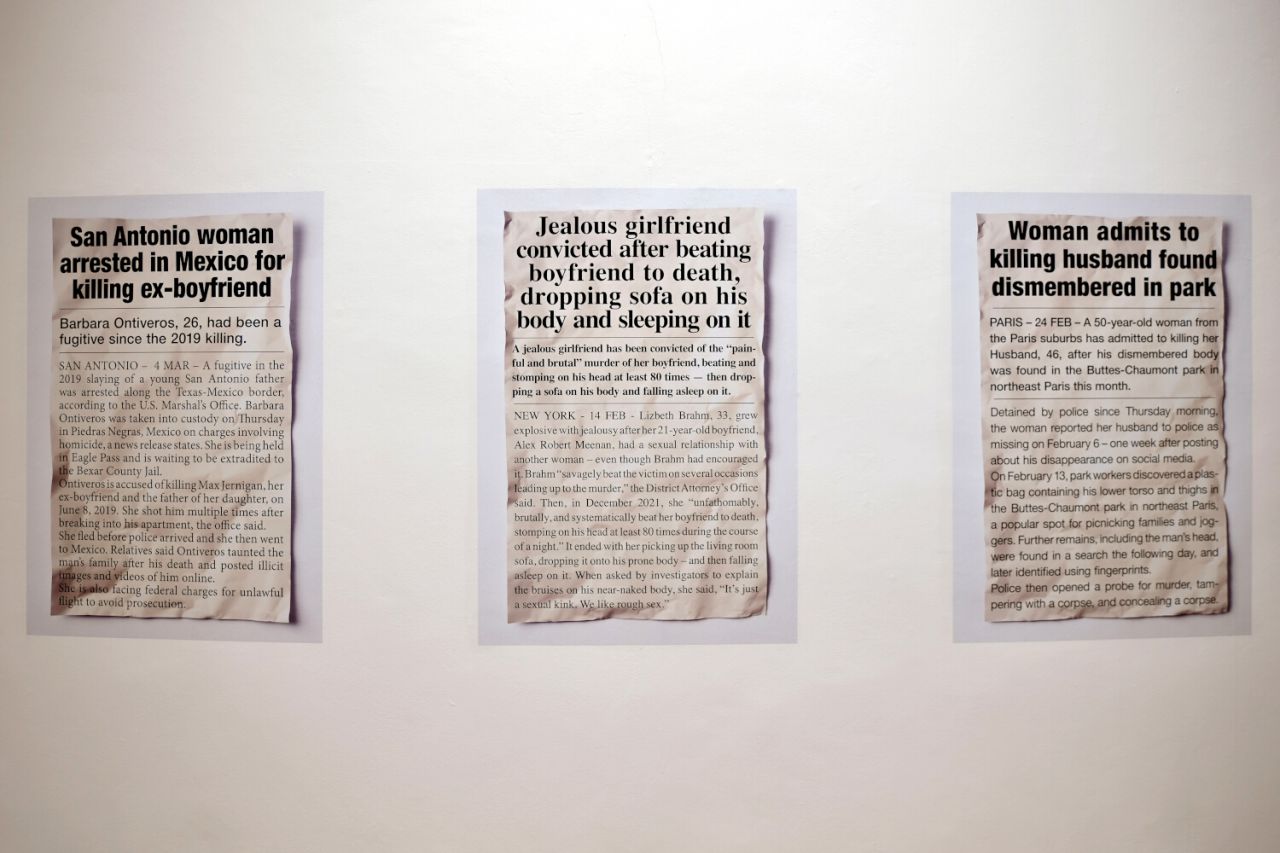 San Antonio woman
arrested in Mexico for
killing ex-boyfriend
Barbara Ontiveros, 26, had been a
fugitive since the 2019 killing.
SAN ANTONIO – 4 MAR – A fugitive in the
2019 slaying of a young San Antonio father
was arrested along the Texas-Mexico border,
according to the U.S. Marshal's Office. Barbara
Ontiveros was taken into custody on Thursday
in Piedras Negras, Mexico on charges involving
homicide, a news release states. She is being held
in Eagle Pass and is waiting to be extradited to
the Bexar County Jail.
Ontiveros is accused of killing Max Jernigan, her
ex-boyfriend and the father of her daughter, on
June 8, 2019. She shot him multiple times after
breaking into his apartment, the office said.
She fled before police arrived and she then went
to Mexico. Relatives said Ontiveros taunted the
man's family after his death and posted illicit
images and videos of him online.
She is also facing federal charges for unlawful
flight to avoid prosecution.
Jealous girlfriend
convicted after beating
boyfriend to death,
dropping sofa on his
body and sleeping on it
A jealous girlfriend has been convicted of the “pain-
ful and brutal” murder of her boyfriend, beating and
stomping on his head at least 80 times — then drop-
ping a sofa on his body and falling asleep on it.
NEW YORK - 14 FEB - Lizbeth Brahm, 33, grew
explosive with jealousy after her 21-year-old boyfriend,
Alex Robert Meenan, had a sexual relationship with
another woman – even though Brahm had encouraged
it. Brahm “savagely beat the victim on several occasions
leading up to the murder,” the District Attorney's Office
said. Then, in December 2021, she “unfathomably,
brutally, and systematically beat her boyfriend to death,
stomping on his head at least 80 times during the course
of a night.” It ended with her picking up the living room
sofa, dropping it onto his prone body – and then falling
asleep on it. When asked by investigators to explain
the bruises on his near-naked body, she said, “It's just
a sexual kink. We like rough sex.”
Woman admits to
killing husband found
dismembered in park
PARIS – 24 FEB – A 50-year-old woman from
the Paris suburbs has admitted to killing her
Husband, 46, after his dismembered body
was found in the Buttes-Chaumont park in
northeast Paris this month.
Detained by police since Thursday morning,
the woman reported her husband to police as
missing on February 6 – one week after posting
about his disappearance on social media.
On February 13, park workers discovered a plas-
tic bag containing his lower torso and thighs in
the Buttes-Chaumont park in northeast Paris,
a popular spot for picnicking families and jog-
gers. Further remains, including the man's head,
were found in a search the following day, and
later identified using fingerprints.
Police then opened a probe for murder, tam-
pering with a corpse, and concealing a corpse.